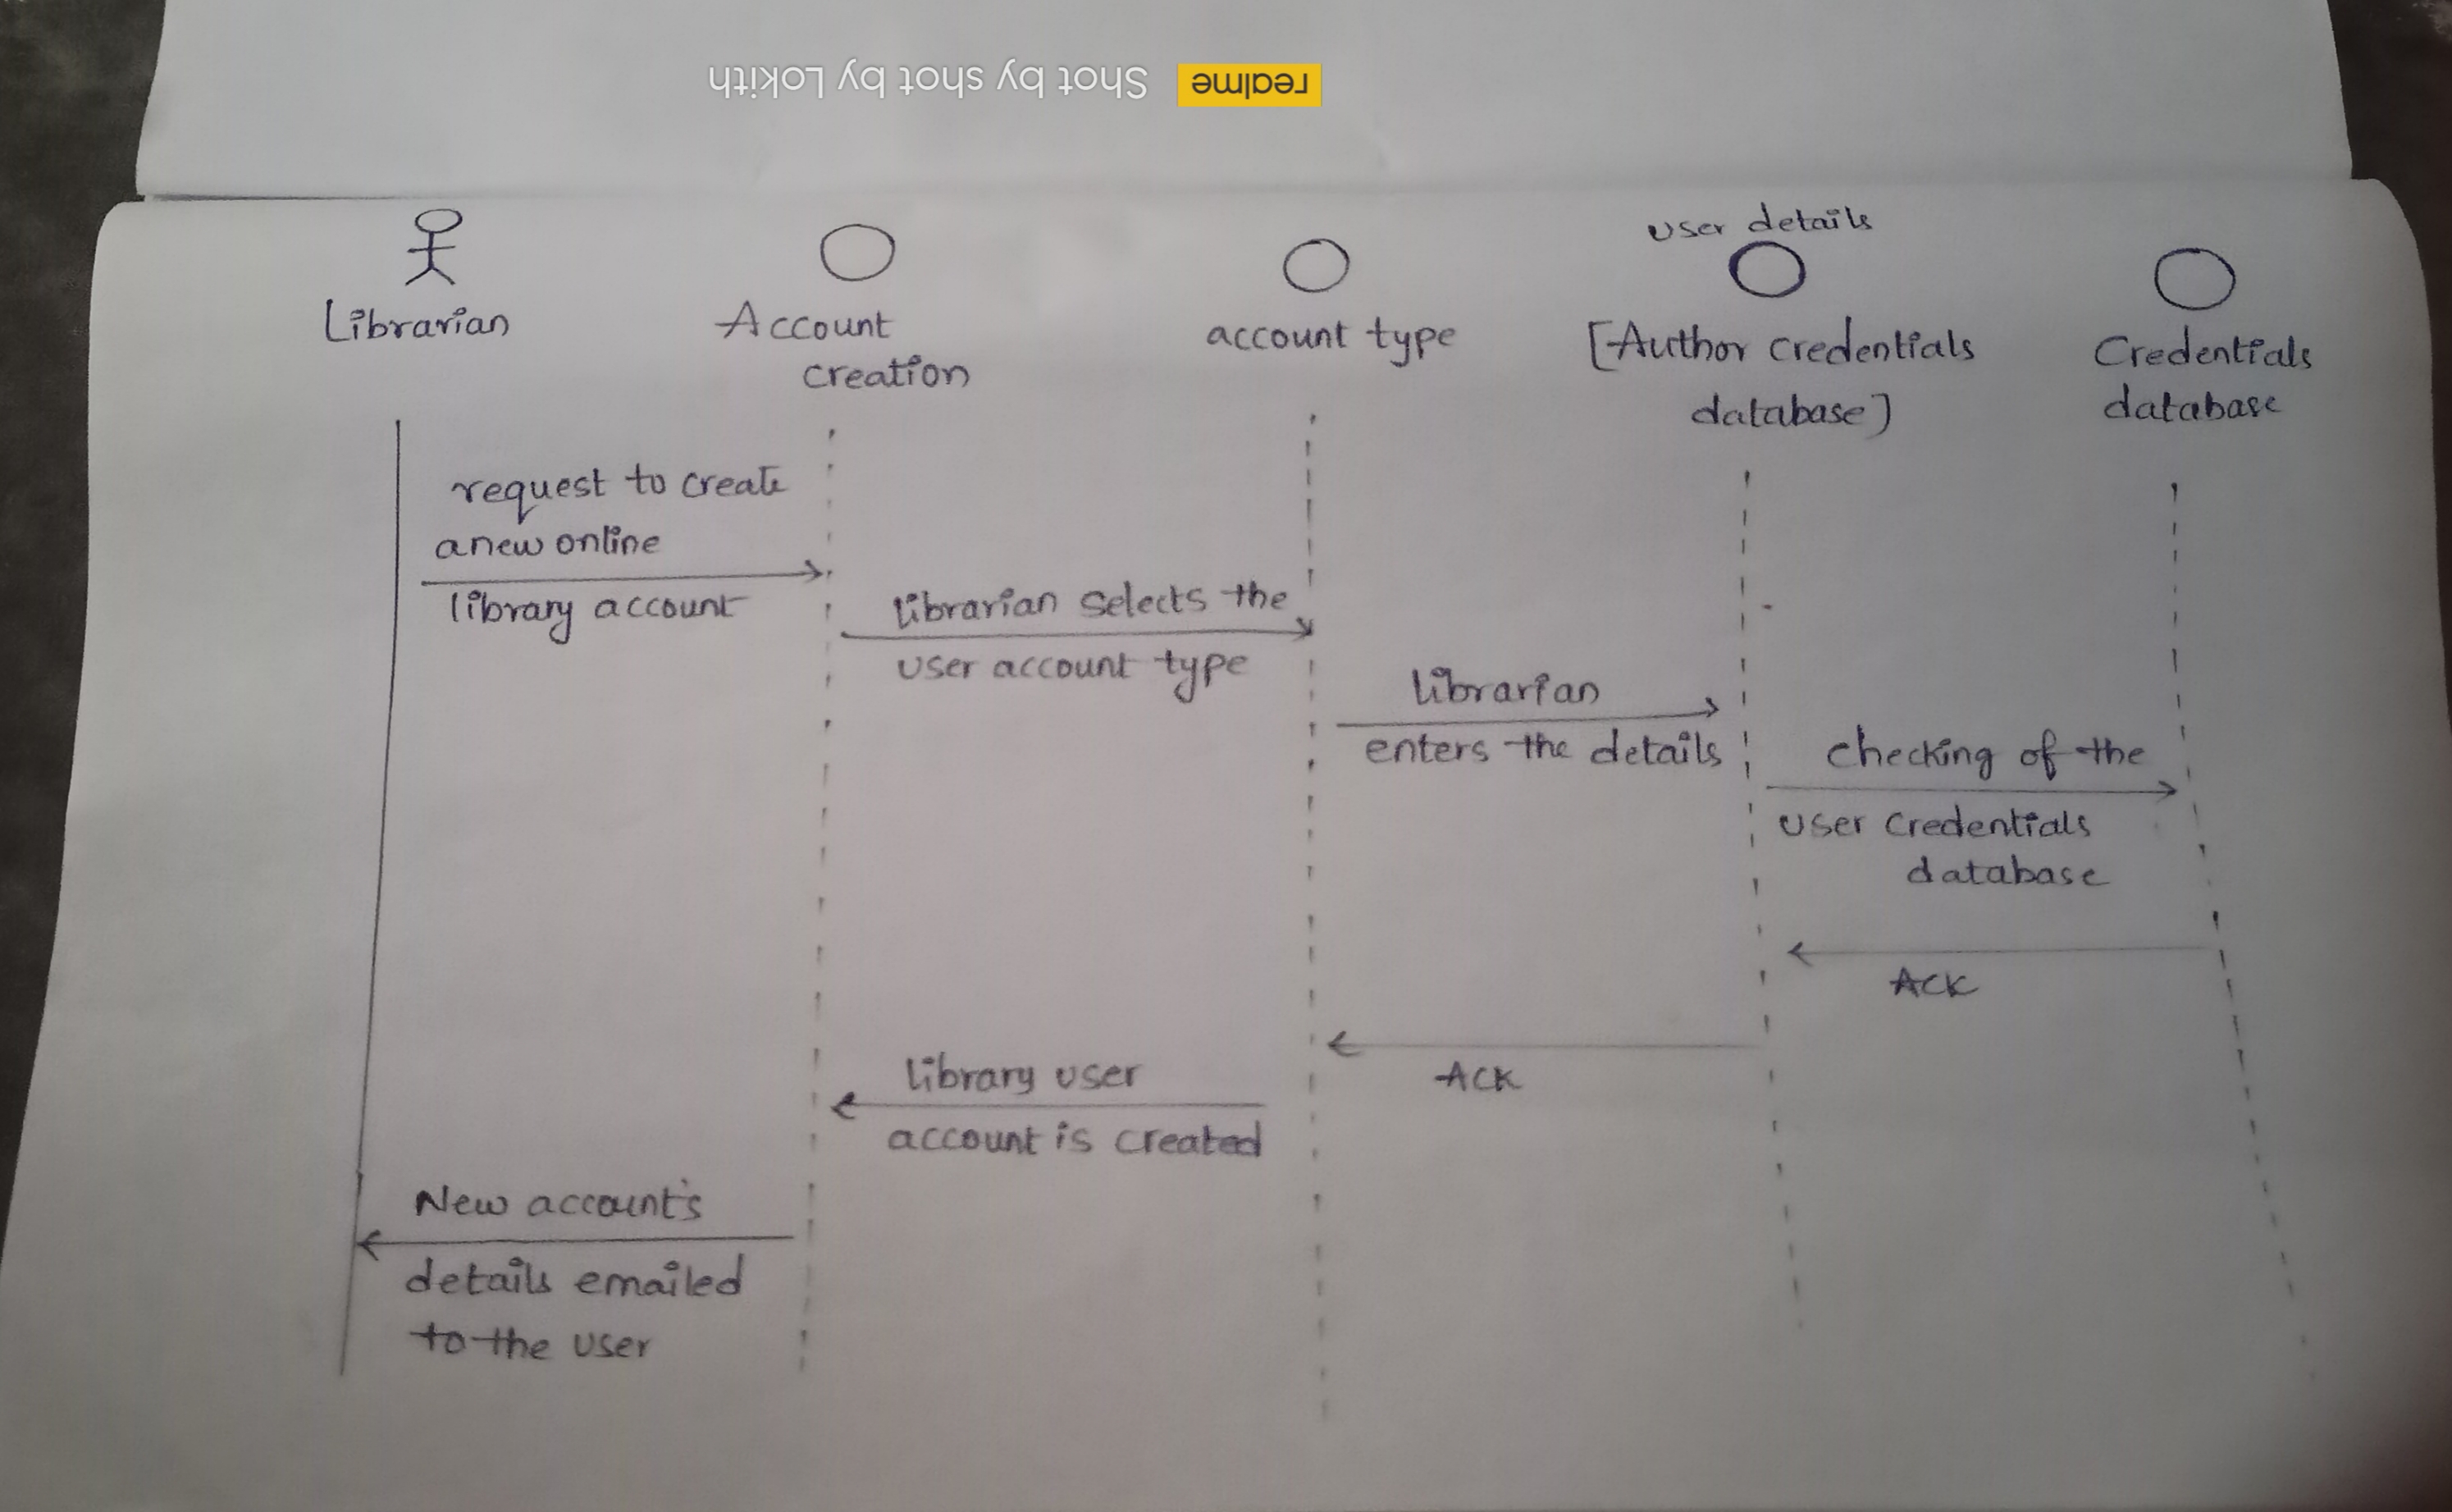 realme Shot by shot by Lokith
user details
Librarian
Account
creation
account type
[Author credentials
database]
Credentials
database
request to create
a new online
library account
librarian selects the
user account type
librarian
enters the details
checking of the
user credentials
database
ACK
ACK
library user
account is created
New account's
details emailed
to the user